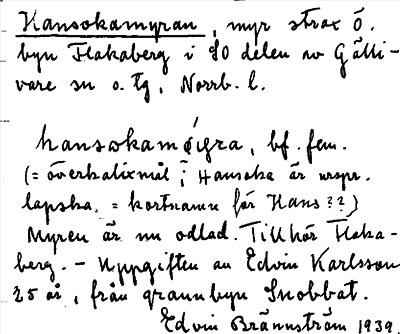 Hansokamyran, myr strax ö.
byn Flakaberg i SO delen av Gälli-
vare sn o. tg, Norrb. l.
hansokam bf. fem.
(= överkalixmål; Hansoka är urspr.
lapska. = kortnamn för Hans??)
Myren är nu odlad. Tillhör Flaka-
berg. - Uppgiften av Edvin Karlsson
25 år, från grannbyn Snobbat.
Edvin Brännström 1939.